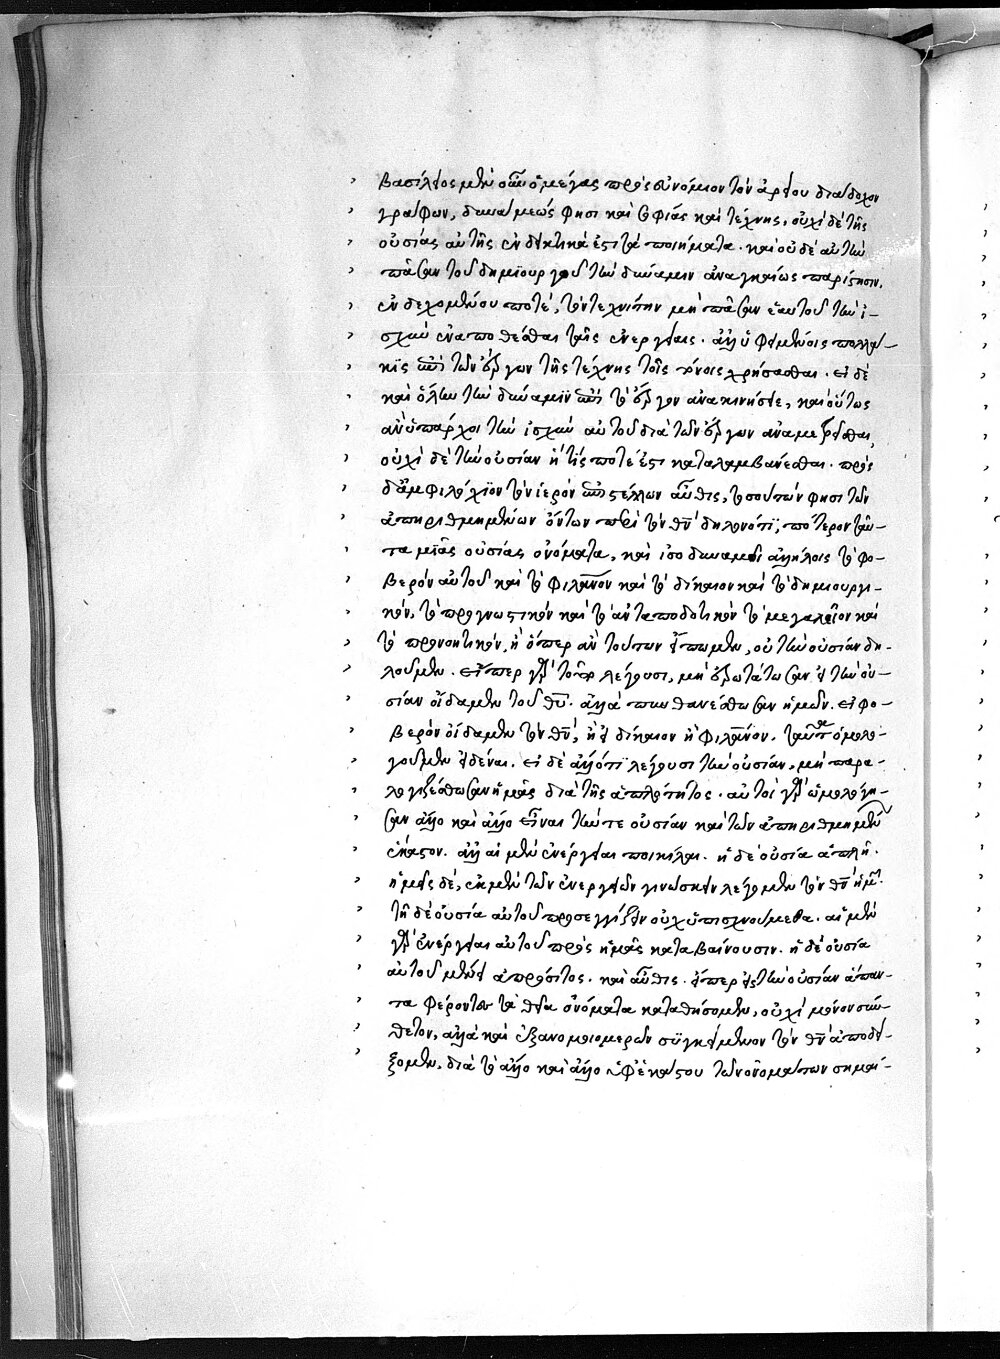 βασίλειος μὲν οὖν ὁ μέγας πρὸς εὐνόμιον τὸν ἀρείου διάδοχον
γράφων, δυνάμεώς φησι καὶ σοφίας καὶ τέχνης, οὐχὶ δὲ τῆς
οὐσίας αὐτῆς ἐνδεικτικά ἐστι τὰ ποιήματα. καὶ οὐδὲ αὐτὴν
πᾶσαν τοῦ δημιουργοῦ τὴν δύναμιν ἀναγκαίως παρίστησιν.
ἐνδεχομένου ποτέ, τὸν τεχνίτην μὴ πᾶσαν ἑαυτοῦ τὴν ἰ-
σχὺν ἐναποθέσθαι ταῖς ἐνεργείαις. ἀλλ' ὑφειμένοις πολλά-
κις ἐπὶ τῶν ἔργων τῆς τέχνης τοῖς τόνοις χρήσασθαι. εἰ δὲ
καὶ ὅλην τὴν δύναμιν ἐπὶ τὸ ἔργον ἀνακινήσειε, καὶ οὕτως
ἂν ὑπάρχοι τὴν ἰσχὺν αὐτοῦ διὰ τῶν ἔργων ἀναμετρεῖσθαι,
οὐχὶ δὲ τὴν οὐσίαν ἥτις ποτέ ἐστι καταλαμβάνεσθαι. πρὸς
δ' ἀμφιλόχιον τὸν ἱερὸν ἐπιστέλλων αὖθις, τὸ σούτων φησι τῶν
ἀπηριθμημένων ὄντων περὶ τὸν θν δηλονότι; πότερον ταῦ-
τα μιᾶς οὐσίας ὀνόματα, καὶ ἰσοδυναμεῖ ἀλλήλοις τὸ φο-
βερὸν αὐτοῦ καὶ τὸ φιλανον καὶ τὸ δίκαιον καὶ τὸ δημιουργι-
κόν, τὸ προγνωστικὸν καὶ τὸ ἀνταποδοτικὸν τὸ μεγαλεῖον καὶ
τὸ προνοητικόν, ἢ ὅπερ ἂν τούτων εἴπωμεν, οὐ τὴν οὐσίαν δη-
λοῦμεν. εἴπερ γὰρ τοῦτο λέγουσι, μὴ ἐρωτάτωσαν εἰ τὴν οὐ-
σίαν οἴδαμεν τοῦ θυ. ἀλλὰ πυνθανέσθωσαν ἡμῶν. εἰ φο-
βερὸν οἴδαμεν τὸν θν, ἢ εἰ δίκαιον ἢ φιλανον. ταῦτα ὁμολο-
γοῦμεν εἰδέναι. εἰ δὲ ἄλλό τι λέγουσι τὴν οὐσίαν, μὴ παρα-
λογιζέσθωσαν ἡμᾶς διὰ τῆς ἁπλότητος. αὐτοὶ γὰρ ὡμολόγη-
σαν ἄλλο καὶ ἄλλο εἶναι τήν τε οὐσίαν καὶ τῶν ἀπηριθμημένων
ἕκαστον. ἀλλ' αἱ μὲν ἐνέργειαι ποικίλαι. ἡ δὲ οὐσία ἁπλῆ.
ἡμεῖς δὲ, ἐκ μὲν τῶν ἐνεργειῶν γινώσκειν λέγομεν τὸν θν ἡμῶν.
τῇ δὲ οὐσία αὐτοῦ προσεγγίζειν οὐχ ὑπισχνούμεθα. αἱ μὲν
γὰρ ἐνέργειαι αὐτοῦ πρὸς ἡμᾶς καταβαίνουσιν. ἡ δὲ οὐσία
αὐτοῦ μένει ἀπρόσιτος. καὶ αὖθις. εἴπερ εἰς τὴν οὐσίαν ἅπαν-
τα φέροντες τὰ θεῖα ὀνόματα καταθήσομεν, οὐχὶ μόνον σύν-
θετον, ἀλλὰ καὶ ἐξ ἀνομοιομερῶν συγκείμενον τὸν θν ἀποδεί-
ξομεν. διὰ τὸ ἄλλο καὶ ἄλλο ὑφ' ἑκάστου τῶν ὀνομάτων σημαί-